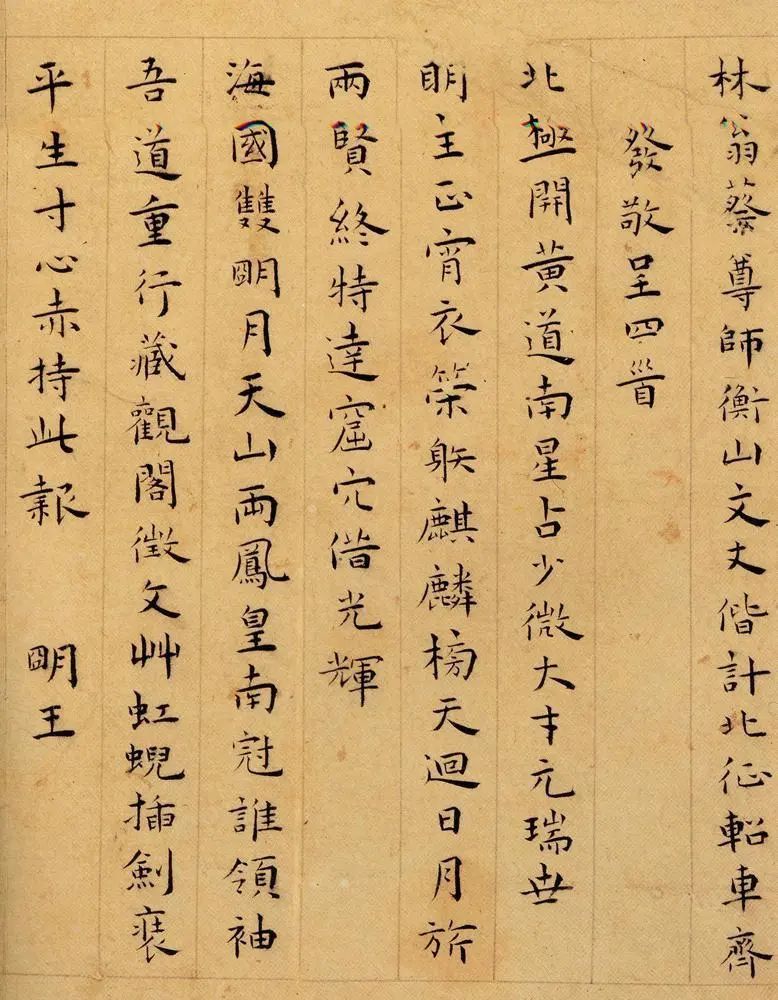 林翁蔡尊師衡山文丈偕計北征軺車齊
發敬呈四首
北極開黃道南星占少微大才元瑞世
明主正宵衣策䠶麒麟榜天迴日月旂
兩賢終特達窟穴偕光輝
海國雙明月天山兩鳳皇南冠誰領袖
吾道重行藏觀閣徵文艸虹蜺插劍裝
平生寸心赤持此報 明王